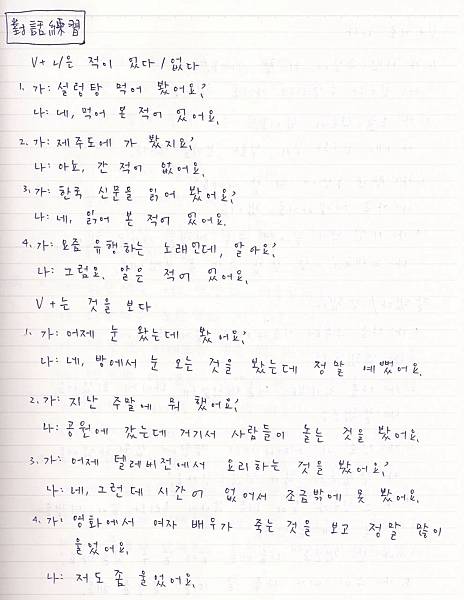 對話練習
V + ㄴ/은 적이 있다 / 없다
1. 가: 설렁탕 먹어 봤어요?
나: 네, 먹어 본 적이 있어요.
2. 가: 제주도에 가 봤지요?
나: 아뇨, 간 적이 없어요.
3. 가: 한국 신문을 읽어 봤어요?
나: 네, 읽어 본 적이 있어요.
4. 가: 요즘 유행하는 노래인데, 알아요?
나: 그럼요. 알은 적이 있어요.
V + 는 것을 보다
1. 가: 어제 눈 왔는데 봤어요?
나: 네, 방에서 눈 오는 것을 봤는데 정말 예뻤어요.
2. 가: 지난 주말에 뭐 했어요?
나: 공원에 갔는데 거기서 사람들이 노는 것을 봤어요.
3. 가: 어제 텔레비전에서 요리하는 것을 봤어요?
나: 네, 그런데 시간이 없어서 조금밖에 못 봤어요.
4. 가: 영화에서 여자 배우가 죽는 것을 보고 정말 많이
울었어요.
나: 저도 좀 울었어요.